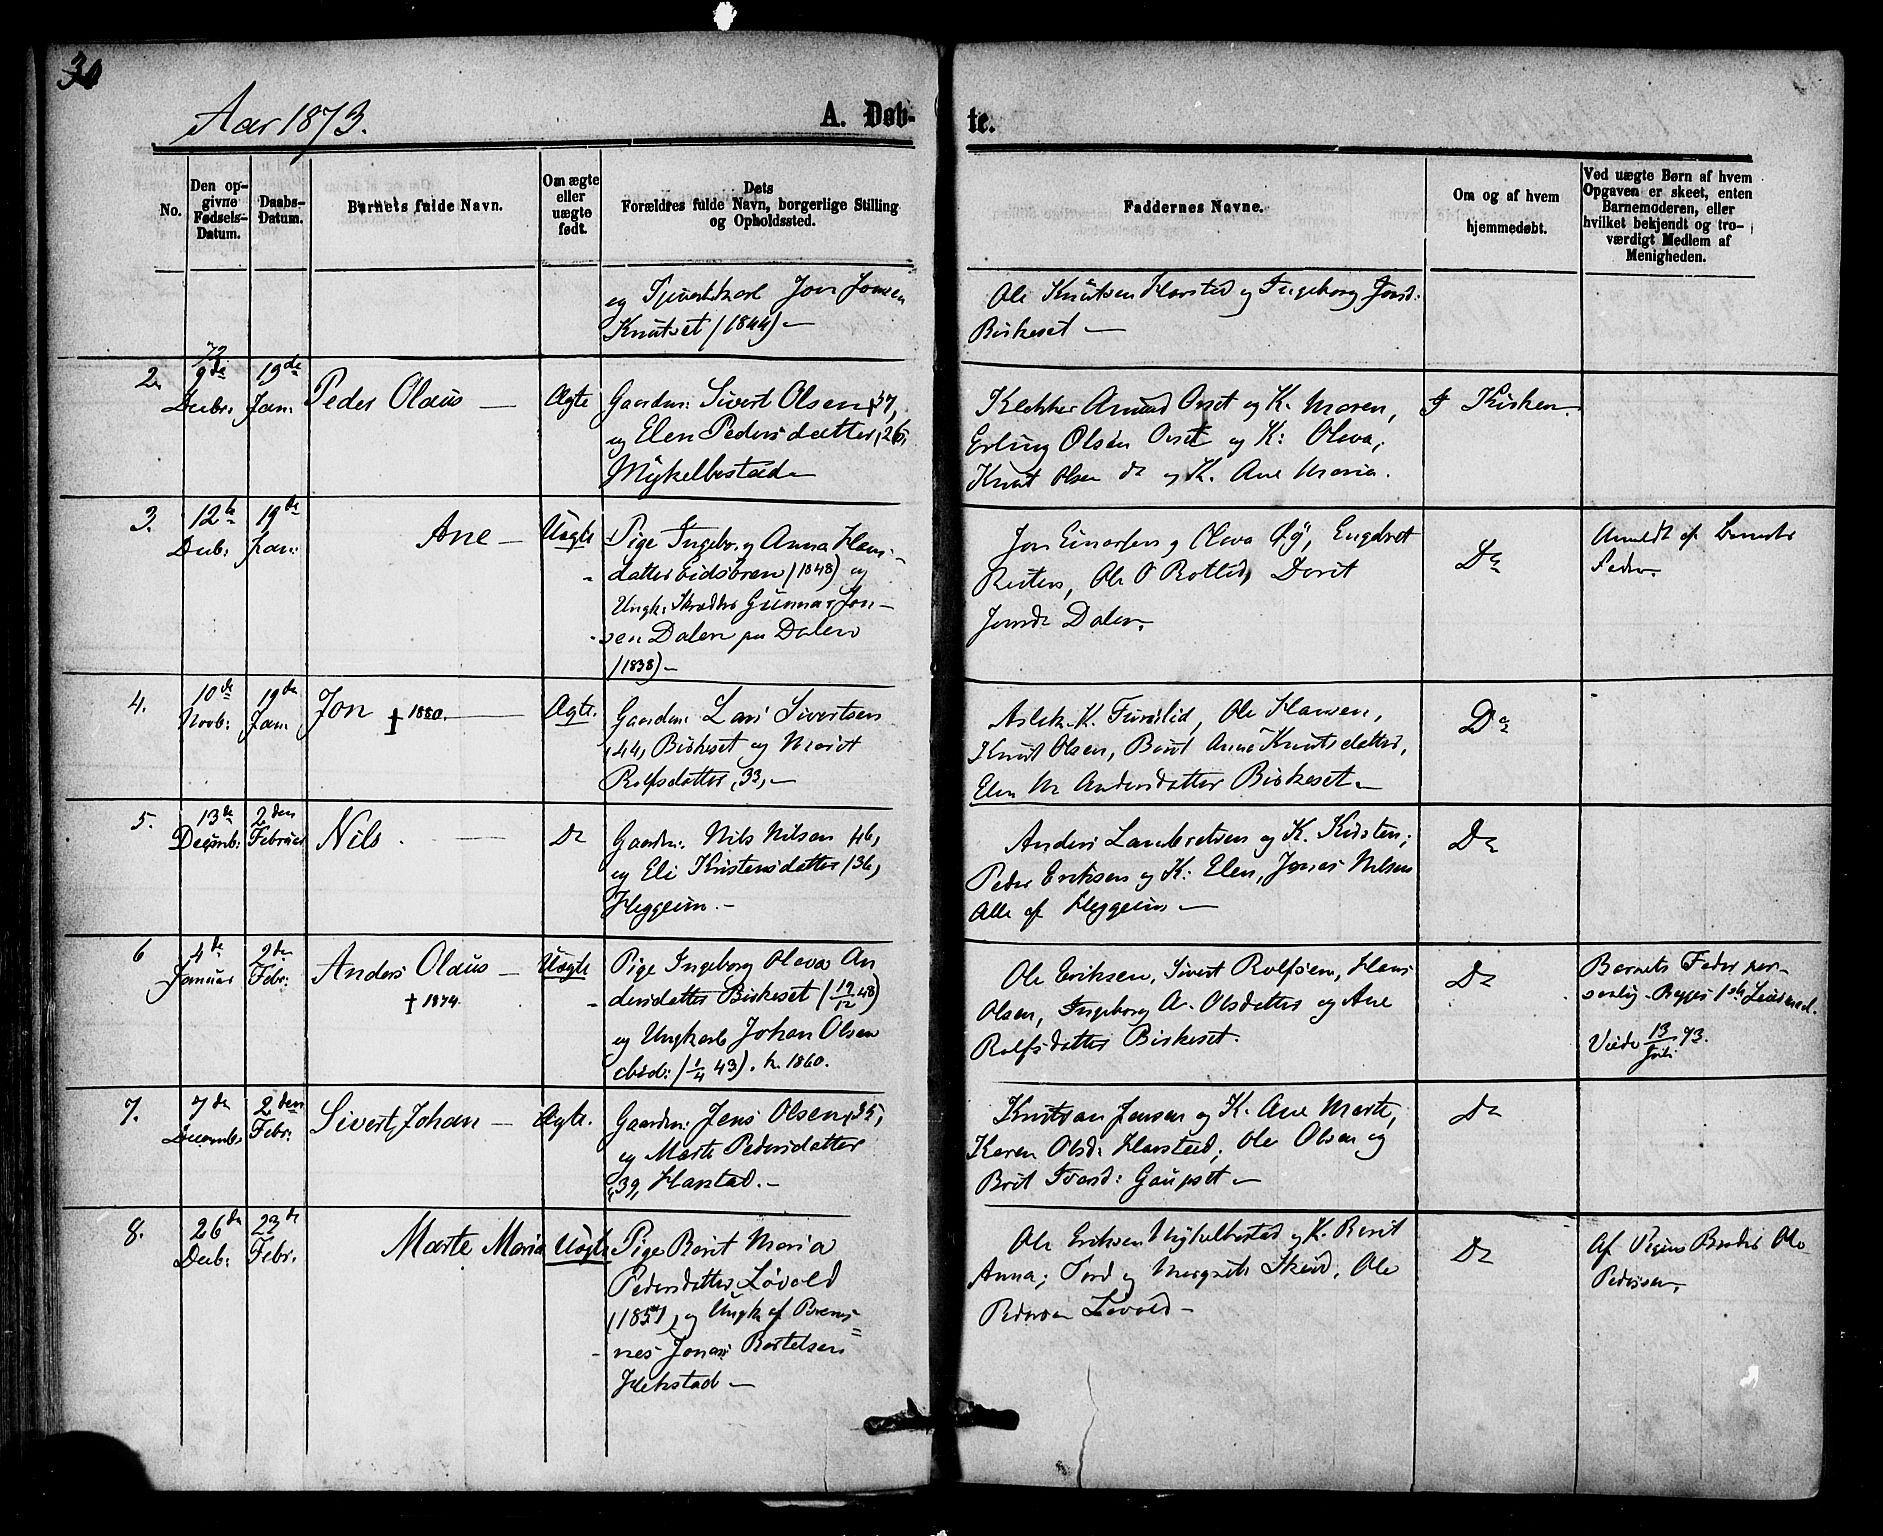 30
Aar 1873.
A. Døb-
te.
No.
Den op-
givne
Fødsels-
Datum.
Daabs-
Datum.
Barnets fulde Navn.
Om ægte
eller
uægte
født.
Dets
Forældres fulde Navn, borgerlige Stilling
og Opholdssted.
Faddernes Navne.
Om og af hvem
hjemmedøbt.
Ved uægte Børn af hvem
Opgaven er skeet, enten
Barnemoderen, eller
hvilket bekjendt og tro-
værdigt Medlem af
Menigheden.
og Jon Jonsen
Knutset (1844) —
Ole Knutsen Harstad og Ingeborg Jonsd:
Birkeset —
2.
72
9de
Decbr:
19de
Jan:
Peder Olaus —
Ægte
Gaardm: Sivert Olsen, 37,
og Elen Pedersdatter, 26,
Mykelbostad
Klokker Amund Orset og K. Maren,
Erling Olsen Orset og K: Olava,
Knut Olsen do og K. Ane Maria.
I Kirken
3.
12te
Decb:
19de
Jan:
Ane —
Uægte
Pige Ingeborg Anna Hans-
datter Eidsøren (1848) og
Ungk: Skrædder Gunnar Jon-
sen Dalen paa Dalen
(1838) —
Jon Einarsen og Olava Øy, Engebret
Reiten, Ole O Rotlid, Dorit
Jonsd: Dalen.
Do
Anmeldt af Barnets
Fader.
4.
10de
Novb:
19de
Jan.
Jon † 1880.
Ægte.
Gaardm: Lars Sivertsen
44, Birkeset og Marit
Rolfsdatter, 33, —
Aslak K. Furulid, Ole Hansen,
Knut Olsen, Berit Anne Knutsdatter,
Elen M Andersdatter Birkeset —
Do
5.
13de
Decemb:
2den
Februar
Nils
Do
Gaardm: Nils Nilsen 46,
og Eli Kristensdatter (36,
Heggeim. —
Anders Lambertsen og K. Kirsten;
Peder Eriksen og K: Elen, Jonas Nilsen
Alle af Heggeim —
Do
6
4de
Januar
2den
Febr:
Anders Olaus —
† 1874
Uægte
Pige Ingeborg Olava An
dersdatter Birkeset (19/12 48)
og Ungkarl Johan Olsen
ibid: (1/4 43). k. 1860.
Ole Eriksen, Sivert Rolfsen, Hans
Olsen, Ingeborg A. Olsdatter og Ane
Rolfsdatter Birkeset.
Do
Barnets Fader per-
sonlig - Begges 1ste Leiermaal.
Viede 13/Juli 73.
7.
7de
Decemb:
2den
Febr:
Sivert Johan —
Ægte.
Gaardm: Jens Olsen, 35,
og Marte Pedersdatter
39, Harstad. —
Kristian Jensen og K. Ane Marte,
Karen Olsd: Harstad, Ole Olsen og
Brit Ivarsd: Gaupset —
Do
8.
26de
Decb:
23de
Febr.
Marte Maria
Uægte
Pige Berit Maria
Pedersdatter Løvold
(1851), og Ungk. af Brems-
nes Jonas Bortelsen
Hekstad —
Ole Eriksen Mykelbostad og K. Berit
Anna; Tord og Margrete Skeid, Ole
Pedersen Løvold —
Do
Af Pigens Broder Ole
Pedersen.